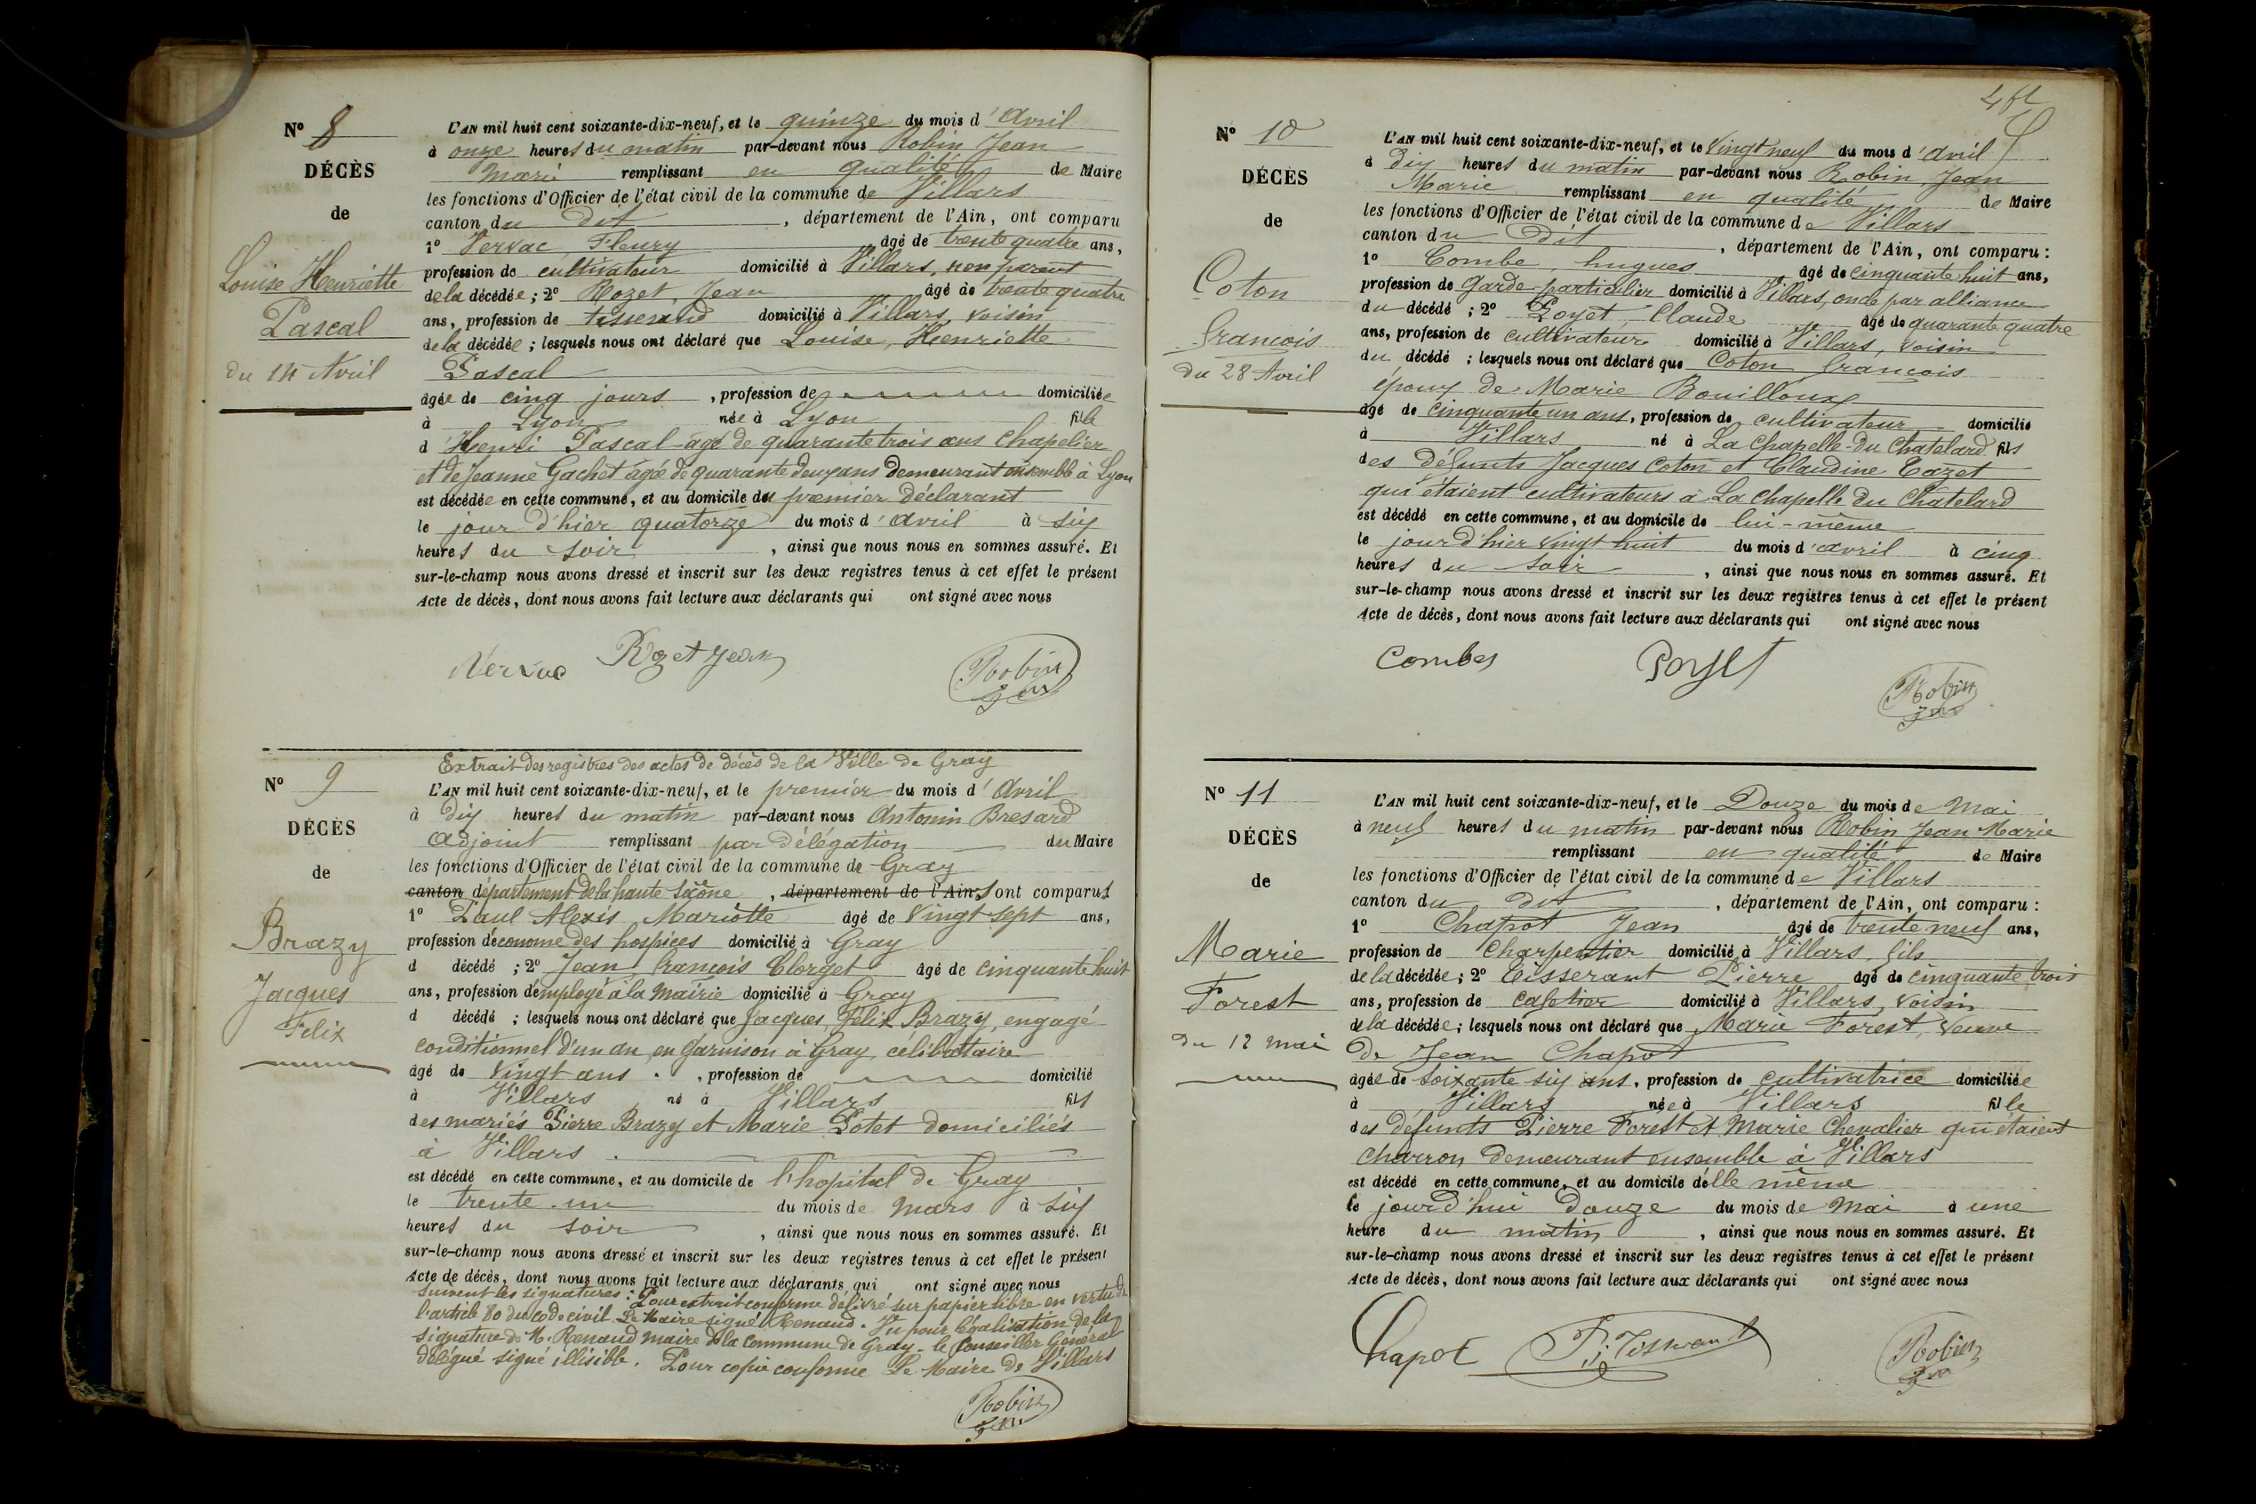 N° 8
DÉCÈS
de
Louise Henriette
Pascal
du 14 Avril
L'AN mil huit cent soixante-dix-neuf, et le quinze du mois d'Avril
à onze heures du matin par-devant nous Robin Jean
Marie remplissant en qualité de Maire
les fonctions d'Officier de l'état civil de la commune de Villars
canton du dit, département de l'Ain, ont comparu
1° Vervac Fleury âgé de trente quatre ans,
profession de cultivateur domicilié à Villars, non parent
de la décédée ; 2° Rozet, Jean âgé de trente quatre
ans, profession de tisserand domicilié à Villars, voisin
de la décédée ; lesquels nous ont déclaré que Louise, Henriette
Pascal
âgée de cinq jours, profession de domiciliée
à Lyon née à Lyon fille
d'Henri Pascal agé de quarante trois ans chapelier
et de Jeanne Gachet agée de quarante deux ans demeurant ensemble à Lyon
est décédée en cette commune, et au domicile du premier déclarant
le jour d'hier quatorze du mois d'avril à six
heures du soir, ainsi que nous nous en sommes assuré. Et
sur-le-champ nous avons dressé et inscrit sur les deux registres tenus à cet effet le présent
Acte de décès, dont nous avons fait lecture aux déclarants qui ont signé avec nous
Vervac Rozet Jean Robin
N° 9
DÉCÈS
de
Brazy
Jacques
Félix
Extrait des registres des actes de décès de la Ville de Gray
L'AN mil huit cent soixante-dix-neuf, et le premier du mois d'Avril
à dix heures du matin par-devant nous Antonin Bresard
Adjoint remplissant par délégation du Maire
les fonctions d'Officier de l'état civil de la commune de Gray
canton département de la haute Saône, département de l'Ain, ont comparus
1° Paul Alexis Mariotte âgé de vingt sept ans,
profession d'économe des hospices domicilié à Gray
d décédé ; 2° Jean François Clerget âgé de cinquante huit
ans, profession d'employé à la Mairie domicilié à Gray
d décédé ; lesquels nous ont déclaré que Jacques Félix Brazy, engagé
conditionnel d'un an, en garnison à Gray, célibataire
âgé de vingt ans, profession de domicilié
à Villars né à Villars fils
des mariés Pierre Brazy et Marie Potet domiciliés
à Villars.
est décédé en cette commune, et au domicile de l'hopital de Gray
le trente-un du mois de mars à six
heures du soir, ainsi que nous nous en sommes assuré. Et
sur-le-champ nous avons dressé et inscrit sur les deux registres tenus à cet effet le présent
Acte de décès, dont nous avons fait lecture aux déclarants qui ont signé avec nous
suivent les signatures : Pour extrait conforme délivré sur papier libre en vertu de
l'article 80 du code civil Le Maire signé Renaud. Vu pour légalisation de la
signature de M. Renaud maire de la commune de Gray - le Conseiller Général
délégué signé illisible. Pour copie conforme Le Maire de Villars
Robin
N° 10
DÉCÈS
de
Coton
François
du 28 Avril
L'AN mil huit cent soixante-dix-neuf, et le vingt neuf du mois d'Avril
à dix heures du matin par-devant nous Robin, Jean
Marie remplissant en qualité de Maire
les fonctions d'Officier de l'état civil de la commune de Villars
canton du Dit, département de l'Ain, ont comparu :
1° Combe, hugues âgé de cinquante huit ans,
profession de garde-particulier domicilié à Villars, oncle par alliance
du décédé ; 2° Poyet, Claude âgé de quarante quatre
ans, profession de cultivateur domicilié à Villars, voisin
du décédé ; lesquels nous ont déclaré que Coton François
époux de Marie Bouilloux
âgé de cinquante un ans, profession de cultivateur domicilié
à Villars né à La Chapelle-du Chatelard fils
des défunts Jacques Coton et Claudine Cazet
qui étaient cultivateurs à La chapelle du Châtelard
est décédé en cette commune, et au domicile de lui-même
le jour d'hier vingt huit du mois d'avril à cinq
heures du soir, ainsi que nous nous en sommes assuré. Et
sur-le-champ nous avons dressé et inscrit sur les deux registres tenus à cet effet le présent
Acte de décès, dont nous avons fait lecture aux déclarants qui ont signé avec nous
Combes Poyet Robin
N° 11
DÉCÈS
de
Marie
Forest
du 12 mai
L'AN mil huit cent soixante-dix-neuf, et le Douze du mois de Mai
à neuf heures du matin par-devant nous Robin Jean Marie
remplissant en qualité de Maire
les fonctions d'Officier de l'état civil de la commune de Villars
canton du dit, département de l'Ain, ont comparu :
1° Chapot Jean âgé de trente neuf ans,
profession de Charpentier domicilié à Villars, fils
de la décédée ; 2° Tisserant Pierre âgé de cinquante trois
ans, profession de cafetier domicilié à Villars, voisin
de la décédée ; lesquels nous ont déclaré que Marie Forest, veuve
de Jean Chapot
âgée de soixante six ans, profession de cultivatrice domiciliée
à Villars née à Villars fille
des défunts Pierre Forest et Marie Chevalier qui étaient
charron demeurant ensemble à Villars
est décédé en cette commune, et au domicile d'elle même
le jourd'hui Douze du mois de Mai à une
heure du matin, ainsi que nous nous en sommes assuré. Et
sur-le-champ nous avons dressé et inscrit sur les deux registres tenus à cet effet le présent
Acte de décès, dont nous avons fait lecture aux déclarants qui ont signé avec nous
Chapot P. Tisserant Robin